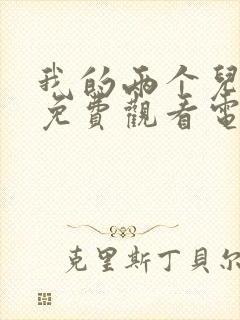 我的两个兒
免費觀看電
克里斯丁貝尔